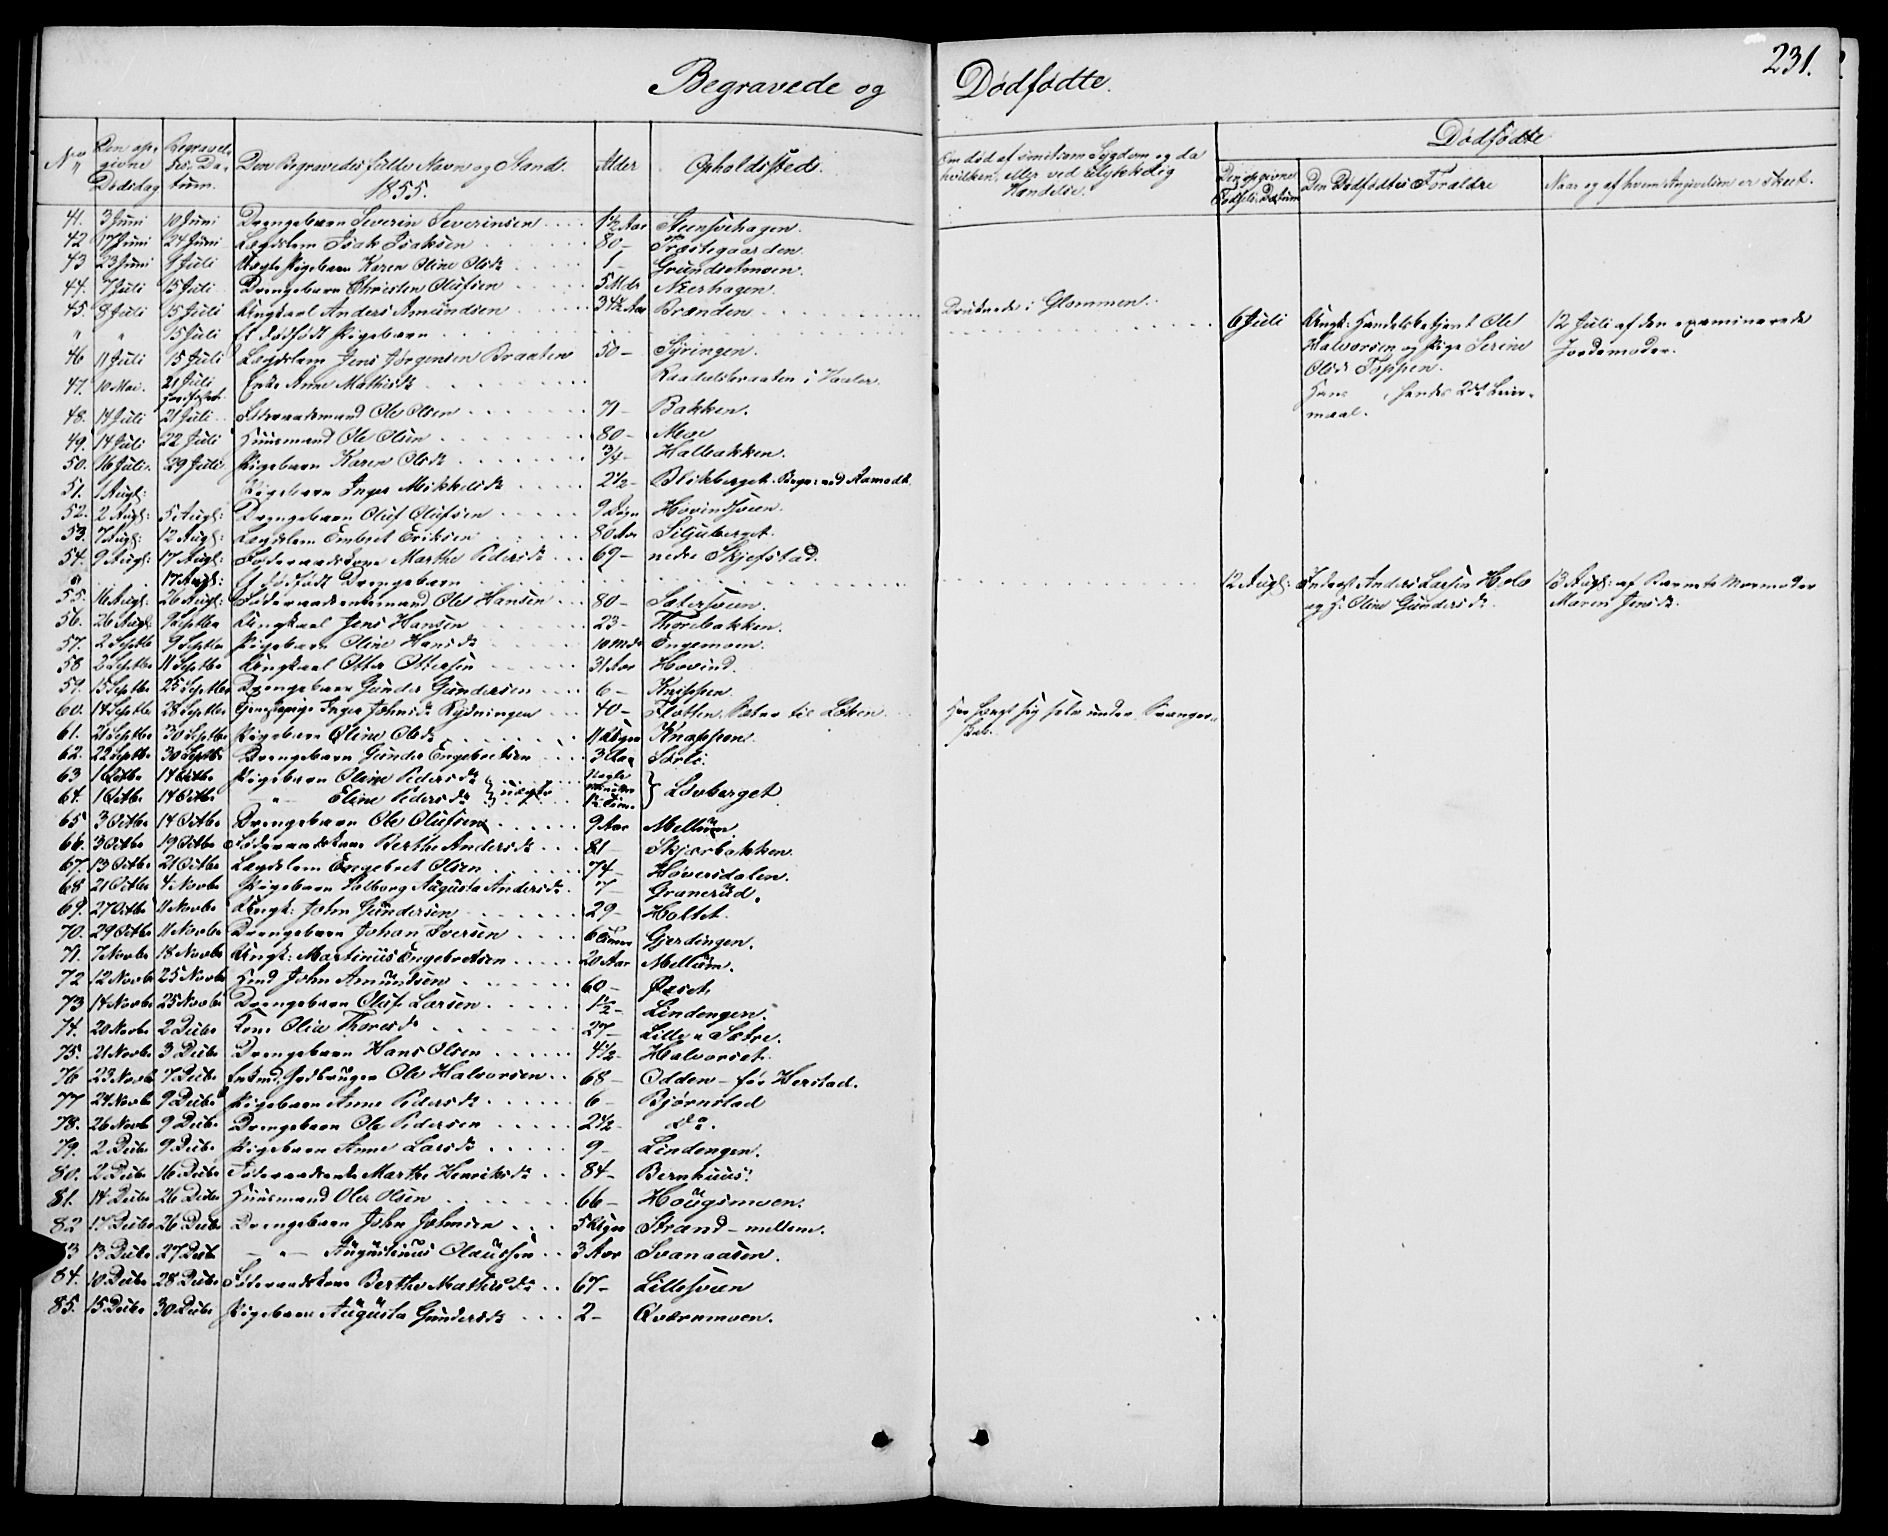 231.
Begravede og Dødfødte.
No Den opgivne Dødsdag Begravelses-Datum. Den Begravedes fulde Navn og Stand. 1855. Alder Opholdssted. Om død af smitsom Sygdom og da hvilken, eller ved ulykkelig Hændelse. Dødfødte
Den opgivne Fødsels-Datum Den Dødfødtes Forældre Naar og af hvem Angivelsen er skeet.
41. 3 Juni 10 Juni Drengebarn Severin Severinsen 1½ Aar Steensvehagen.
42 17 Juni 24 Juni Lægdslem Isak Isaksen 80 – Præstegaarden.
43 23 Juni 8 Juli Uægte Pigebarn Karen Oline Olsd. 1 – Grundsetmoen.
44. 7 Juli 15 Juli Drengebarn Christen Olufsen 5 Mdr Nærhagen.
45. 8 Juli 15 Juli Ungkarl Anders Amundsen 34½ Aar Brænden Druknede i Glommen.
" " 15 Juli Et dødfødt Pigebarn 6 Juli Ungk: Handelsbetjent Ole Halvorsen og Pige Serine Olsd. Toppen. 12 Juli af den examinerede Jordemoder.
46 11 Juli 15 Juli Lægdslem Jens Jørgensen Braaten 50 – Syringen.
47. 10 Mai. 21 Juli Enke Anne Mathisd. Kaadalsbraaten i Vaaler.
hendes 2det Leiermaal.
48. 14 Juli 21 Juli Føderaadsmand Ole Olsen 71 – Bakken.
49. 14 Juli 22 Juli Huusmand Ole Olsen 80 – Moe
50. 16 Juli. 29 Juli. Pigebarn Karen Olsd. ¾ – Halbakken.
51. 1 Augl: Pigebarn Inger Mikkelsd. 2½ – Blikberget. Begr: ved Aamodt
52. 2 Augl: 5 Augl: Drengebarn Oluf Olufsen 9 Døgn Hovindsveen.
53. 7 Augl: 12 Augl: Lægdslem Embret Eriksen 80 Aar Siljuberget.
54. 9 Augl: 17 Augl: Føderaadskone Marthe Pedersd. 69 – nedre Skjefstad.
17 Augl: Et dødfødt Drengebarn 12 Augl: Inderst Anders Larsen Hole og H: Oline Gundersd. 13 Augl: af Barnets Mormoder Maren Jensd.
55. 16 Augl: 26 Augl: Føderaadsenkemand Ole Hansen 80 – Sætersveen.
56. 26 Augl. Septbr Ungkarl Jens Hansen 23 – Thorebakken.
57. 2 Septbr 9 Septbr Pigebarn Oline Hansd. 10 Mdr Engemoen.
58 3 Septbr 11 Septbr Ungkarl Otter Ottersen 31 Aar Hovind.
59. 15 Septbr 25 Septbr Drengebarn Gunder Gundersen 6 – Knippen.
60. 14 Septbr 28 Septbr Inger Johnsd. Rydningen 40 – Sæter til Løken Har hængt sig selv under
61. 21 Septbr 30 Septbr Pigebarn Oline Olsd. 11 Uger Knappen.
62. 22 Septbr 30 Septbr Drengebarn Gunder Engebretsen 3 Aar Sorli.
63 1 Octbr 14 Octbr Pigebarn Oline Pedersd.
64. 1 Octbr 14 Octbr – " – Eline Pedersd. } uægte } Løvberget
65 3 Octbr 14 Octbr Drengebarn Ole Olufsen 9 Aar Mellum
66. 3 Octbr 19 Octbr Føderaadskone Berthe Andersd. 81 – Skjærbakken
67. 13 Octbr 21 Octbr Lægdslem Engebret Olsen 74 – Høversdalen.
68 21 Octbr 4 Novbr Pigebarn Solborg Augusta Andersd. 7 – Granerud.
69. 27 Octbr 11 Novbr Ungk: John Gundersen 29 – Holtet.
70. 29 Octbr 11 Novbr Drengebarn Johan Iversen 6 Timer Gjerdingen.
71. 7 Novbr 18 Novbr Ungk: Martinus Engebretsen 20 Aar Mellum.
72 12 Novbr 25 Novbr Hmd John Amundsen 60 – Øxset.
73 14 Novbr 25 Novbr Drengebarn Oluf Larsen 1½ – Lindengen.
74. 20 Novbr 2 Decbr Kone Olia Thoresd. 27 – Lille Sætre.
75. 21 Novbr 3 Decbr Drengebarn Hans Olsen 4½ – Halvorset.
76 23 Novbr 7 Decbr Enkmd: Jordbruger Ole Halvorsen 68 – Odden – før Herstad.
77 24 Novbr 9 Decbr Pigebarn Anne Pedersd. 6 – Bjørnstad
78. 26 Novbr 9 Decbr Drengebarn Ole Pedersen 2½ – Do.
79. 2 Decbr 9 Decbr Pigebarn Anne Larsd. 9 – Lindengen.
80. 2 Decbr 16 Decbr Føderaadsenke Marthe Henriksd. 84 – Bernhuus.
81. 14 Decbr 26 Decbr Huusmand Ole Olsen 66 – Hougsmoen.
82 17 Decbr 26 Decbr Drengebarn John Johnsen 5 Uger Strand – mellem.
83 13 Decbr 27 Decbr – " – Augustinus Olaussen 3 Aar Svanaasen.
84. 10 Decbr 28 Decbr Føderaadskone Berthe Mathisd. 67 – Lillesveen
85. 15 Decbr 30 Decbr Pigebarn Augusta Gundersd. 2 – Qværnmoen.